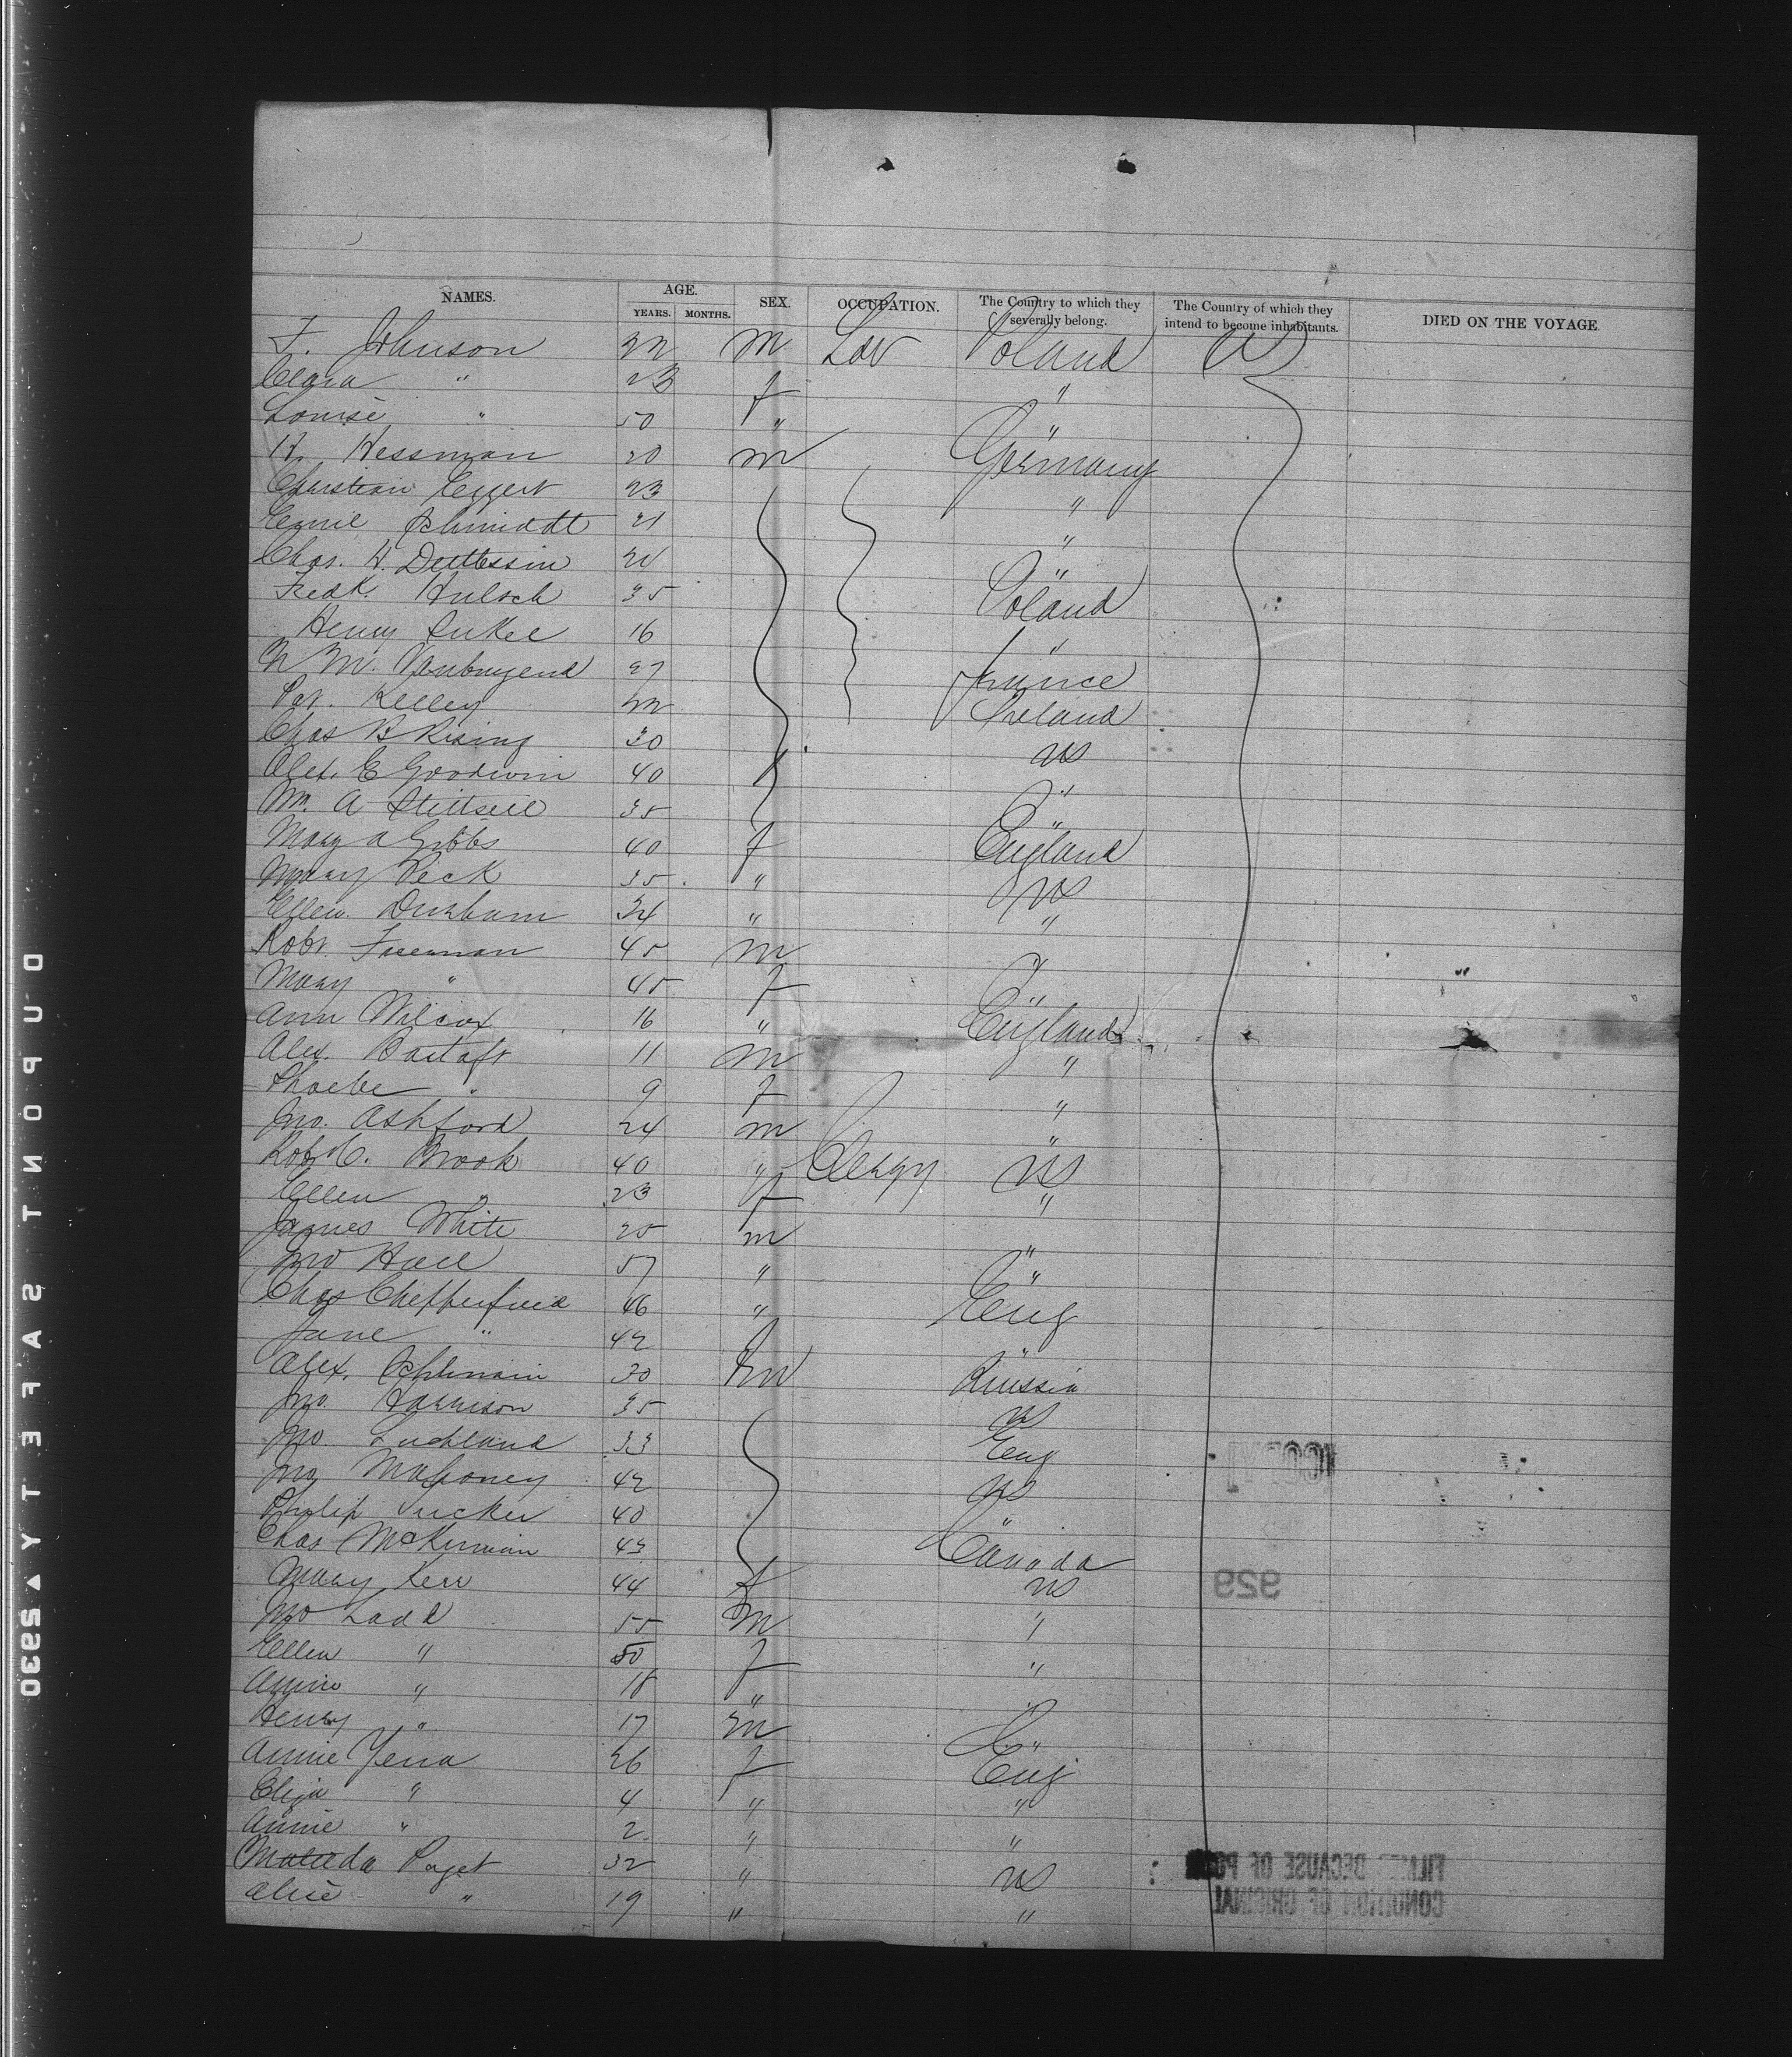 NAMES. AGE. YEARS. MONTHS. SEX. OCCUPATION. The Country to which they severally belong. The Country of which they intend to become inhabitants. DIED ON THE VOYAGE.
F. Johnson 22 m Lab Poland
Clara " 23 f "
Louise " 50 " "
H. Hessman 20 m Germany
Christian Eggert 23 "
Emil Schmiddt 21 "
Chas. H. 24 "
Fredk. 35 Poland
Henry 16 "
27 France
Pat. Kelley 22 Ireland
Chas B Rising 30 US
Alex. E Goodwin 40 "
Wm. A 35 "
Mary A Gibbs 40 f England
Mary Peck 35 " US
Ellen Durham 34 " "
Robt. Freeman 45 m "
Mary " 45 f "
Ann Wilcox 16 " England
Alex. 11 m "
Phoebe " 9 f "
Jno. Ashford 24 m "
Robt C. Brook 40 " Clergy US
Ellen " 23 f "
James White 25 m "
Jno Hall 57 " "
Chas 46 " Eng
Jane " 42 f "
Alex. 30 m Russia
Jno. Harrison 35 US
Jno. 33 Eng
Jno Mahoney 42 US
Philip Tucker 40 "
Chas McKirnian 43 Canada
Mary Kerr 44 f US
Jno Ladd 55 m "
Ellen " 50 f "
Annie " 18 " "
Henry " 17 m "
Annie Yena 26 f Eng
Eliza " 4 " "
Annie " 2 " "
Matilda Paget 32 " US
Alice " 19 " "
COPY
929
FILMED BECAUSE OF POOR
CONDITION OF ORIGINAL
DUPONT SAFETY 25930